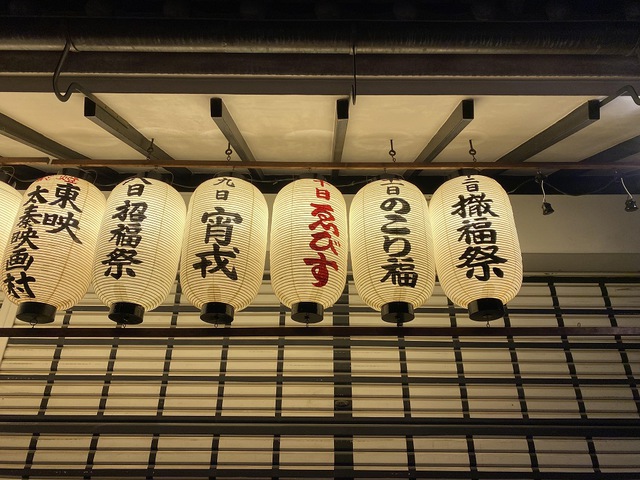 東映
太秦映画村
八日
招福祭
九日
宵戎
十日
ゑびす
十一日
のこり福
十二日
撤福祭